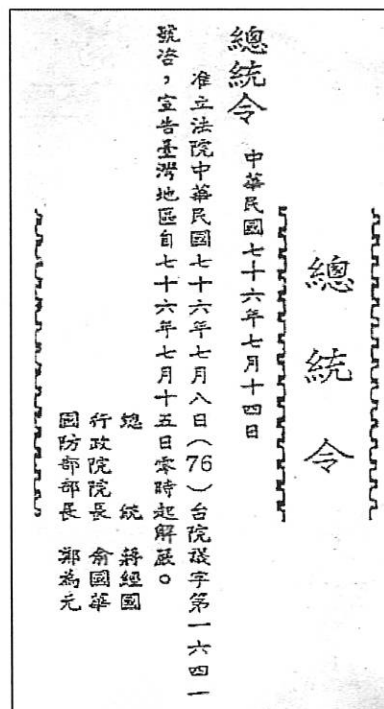 總統令
總統令 中華民國七十六年七月十四日
准立法院中華民國七十六年七月八日（76）台院議字第一六四一
號咨，宣告臺灣地區自七十六年七月十五日零時起解嚴。
總統 蔣經國
行政院院長 俞國華
國防部部長 鄭為元